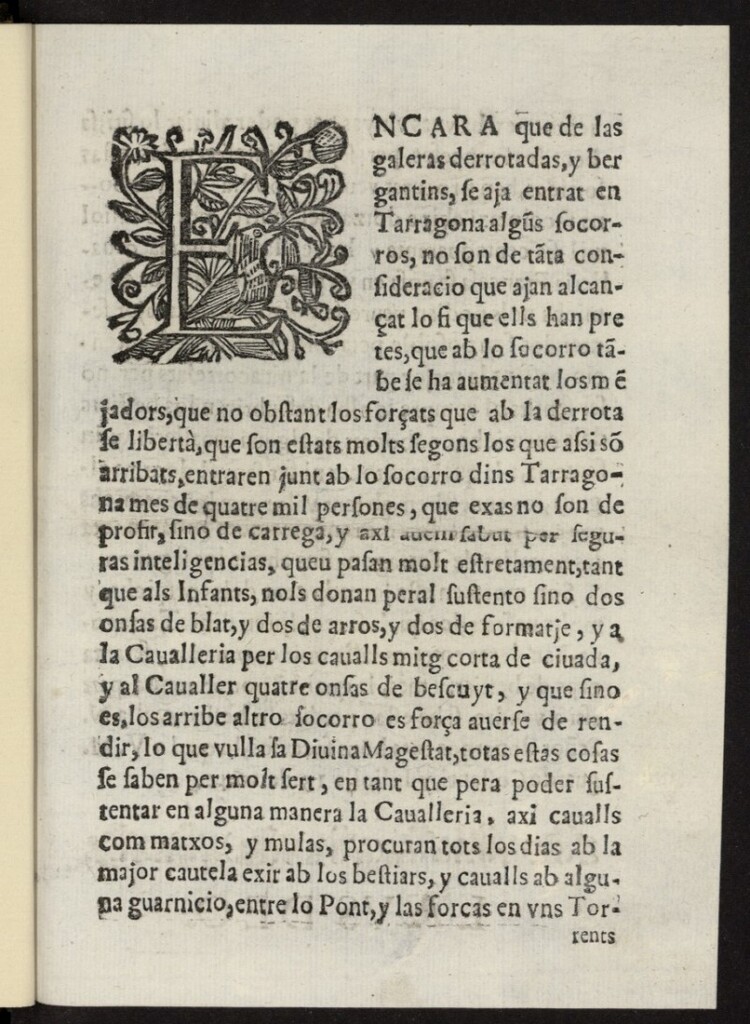 ENCARA que de las
galeras derrotadas, y ber
gantins, ſe aja entrat en
Tarragona algūs ſocor-
ros, no ſon de tāta con-
ſideracio que ajan alcan-
çat lo fi que ells han pre
tes, que ab lo ſocorro tā-
be ſe ha aumentat los mē
jadors, que no obſtant los forçats que ab la derrota
ſe libertà, que ſon eſtats molts ſegons los que aſsi sō
arribats, entraren junt ab lo ſocorro dins Tarrago-
na mes de quatre mil perſones, que exas no ſon de
profit, ſino de carrega, y axi auem ſabut per ſegu-
ras inteligencias, queu paſan molt eſtretament, tant
que als Infants, nols donan peral ſuſtento ſino dos
onſas de blat, y dos de arros, y dos de formatje, y a
la Caualleria per los caualls mitg corta de ciuada,
y al Caualler quatre onſas de beſcuyt, y que ſino
es, los arribe altro ſocorro es força auerſe de ren-
dir, lo que vulla ſa Diuina Mageſtat, totas eſtas coſas
ſe ſaben per molt ſert, en tant que pera poder ſuſ-
tentar en alguna manera la Caualleria, axi caualls
com matxos, y mulas, procuran tots los dias ab la
major cautela exir ab los beſtiars, y caualls ab algu-
na guarnicio, entre lo Pont, y las forcas en vns Tor-
rents